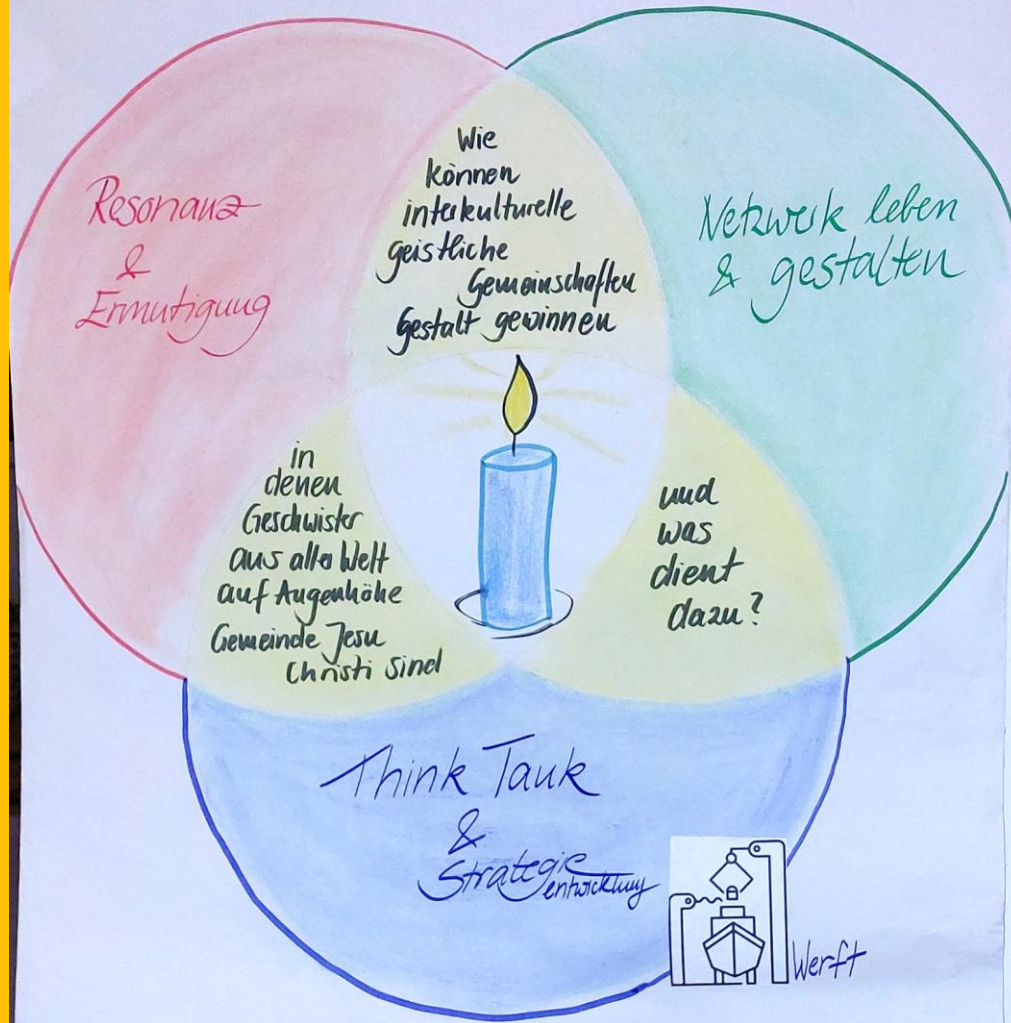 Resonanz
&
Ermutigung
Wie
können
interkulturelle
geistliche
Gemeinschaften
Gestalt gewinnen
Netzwerk leben
& gestalten
in
denen
Geschwister
aus aller Welt
auf Augenhöhe
Gemeinde Jesu
Christi sind
und
was
dient
dazu?
Think Tank
&
Strategie
entwicklung
Werft